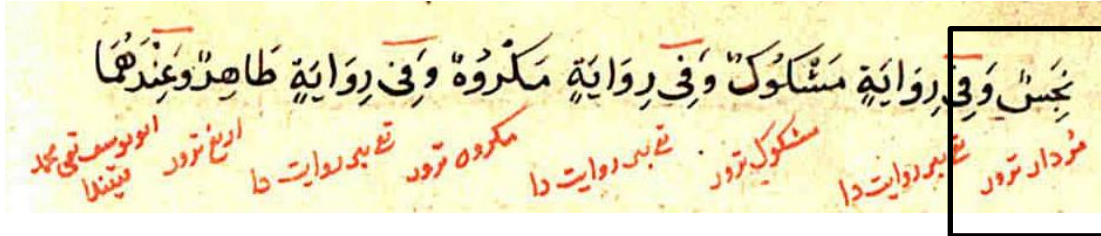 نَجِسٌ وَفِي رِوَايَةٍ مَشْكُوكٌ وَفِي رِوَايَةٍ مَكْرُوهٌ وَفِي رِوَايَةٍ طَاهِرٌ وَعِنْدَهُمَا
مردار ترور تقى بير روايت دا مشكوك ترور تقى بير روايت دا مكروه ترور تقى بير روايت دا اريغ ترور ابو يوسف تقى محمد